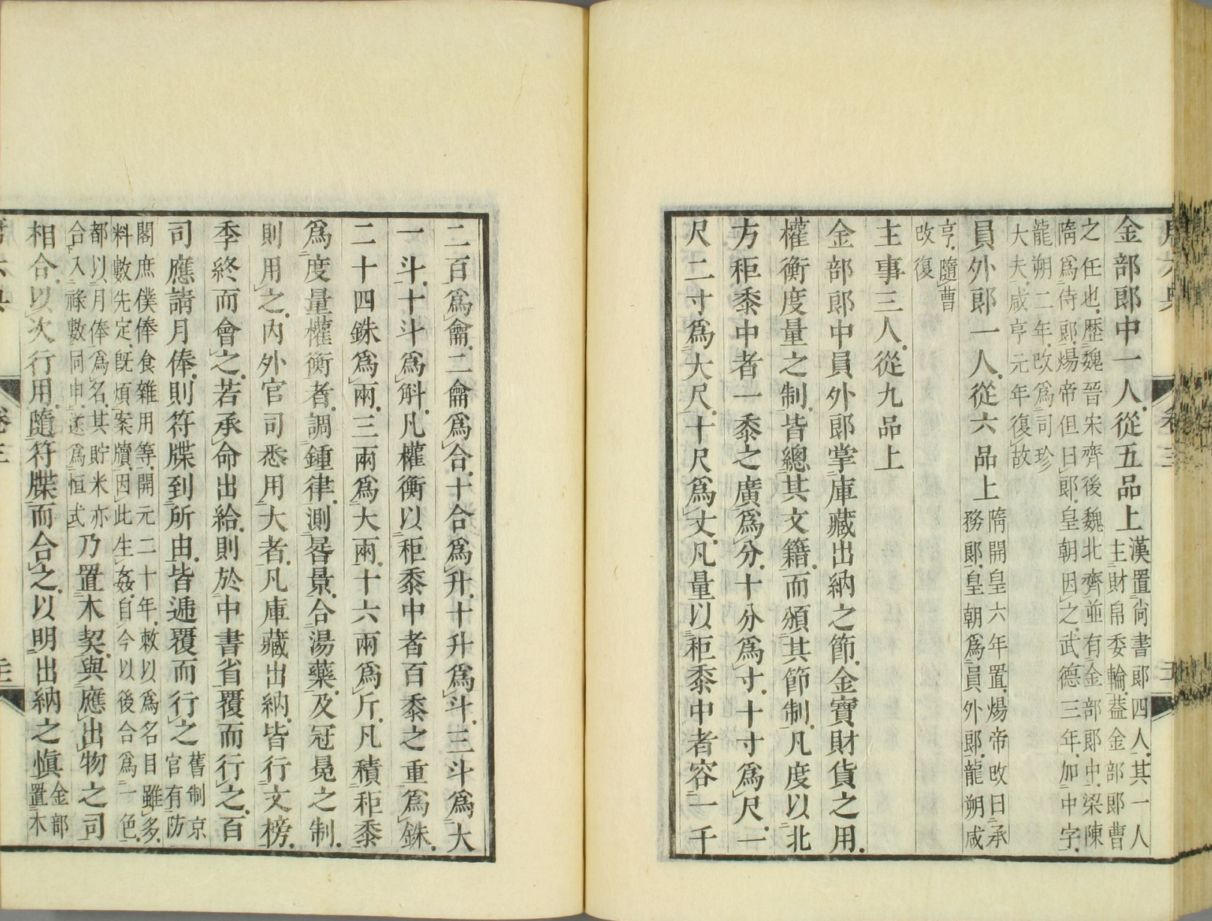 金部郎中一人從五品上漢置尚書郎四人其一人
主財帛委輸蓋金部郎曹
之任也歷魏晉宋齊後魏北齊並有金部郎中梁陳
隋爲侍郎煬帝但曰郎皇朝因之武德三年加中字
龍朔二年改爲司珍
大夫咸亨元年復故
員外郎一人從六品上隋開皇六年置煬帝改曰承
務郎皇朝爲員外郎龍朔咸
亨隨曹
改復
主事三人從九品上
金部郎中員外郎掌庫藏出納之節金寶財貨之用
權衡度量之制皆總其文籍而頒其節制凡度以北
方秬黍中者一黍之廣爲分十分爲寸十寸爲尺一
尺二寸爲大尺十尺爲丈凡量以秬黍中者容一千
二百爲龠二龠爲合十合爲升十升爲斗三斗爲大
一斗十斗爲斛凡權衡以秬黍中者百黍之重爲銖
二十四銖爲兩三兩爲大兩十六兩爲斤凡積秬黍
爲度量權衡者調鍾律測晷景合湯藥及冠冕之制
則用之內外官司悉用大者凡庫藏出納皆行文榜
季終而會之若承命出給則於中書省覆而行之百
司應請月俸則符牒到所由皆遞覆而行之舊制京
官有防
閤庶僕俸食雜用等開元二十年敕以爲名目雖多
料數先定既煩案牘因此生姦自今以後合爲一色
都以月俸爲名其貯米亦
合入祿數同申遂爲恒式乃置木契與應出物之司
相合以次行用隨符牒而合之以明出納之愼金部
置木
卷三